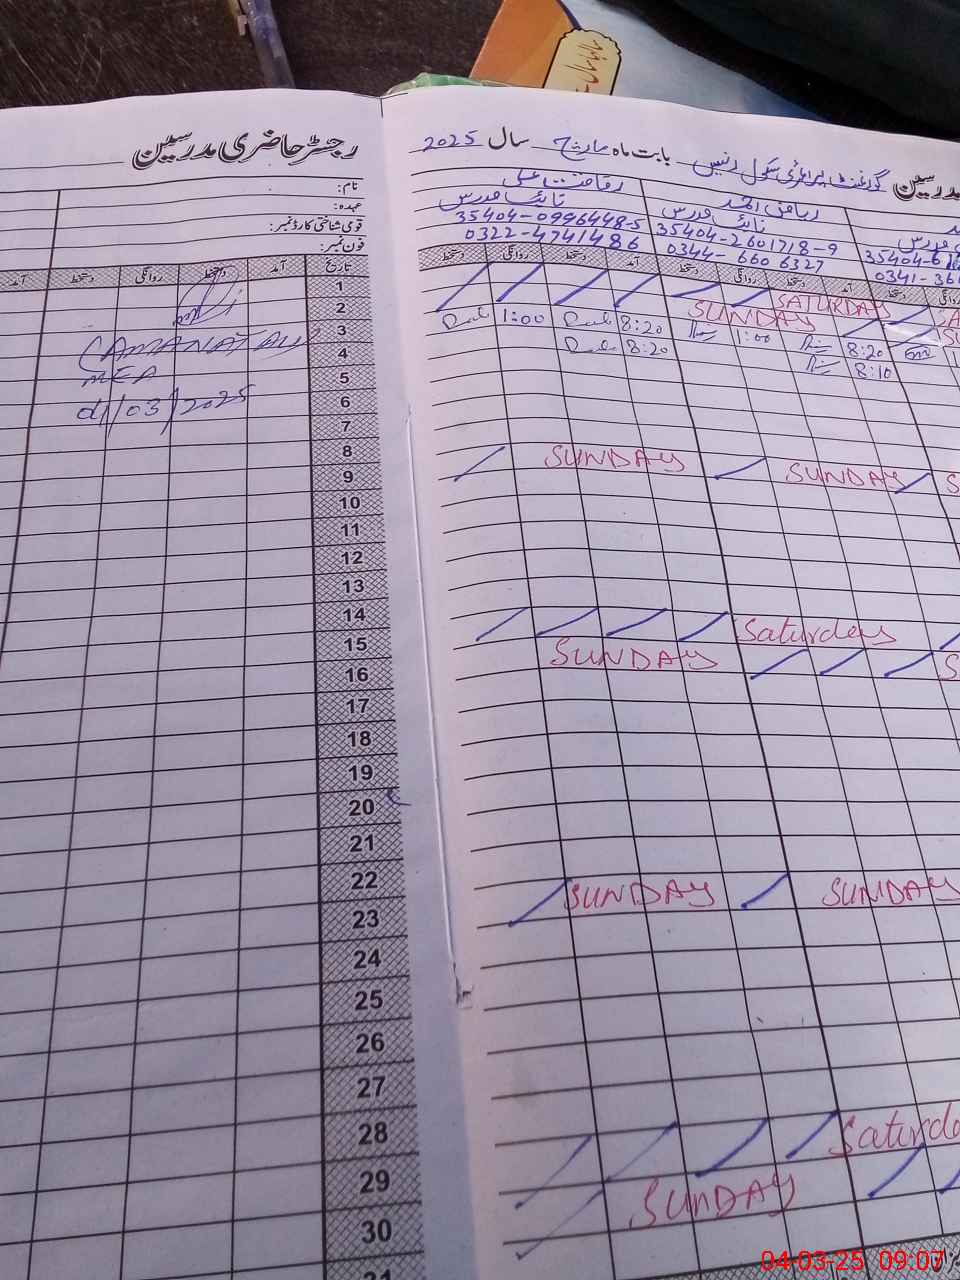 رجسٹر حاضری مدرسین
نام:
عہدہ:
قومی شناختی کارڈ نمبر:
فون نمبر:
تاریخ آمد دستخط روانگی دستخط آمد
1
2
3
4
5
6
7
8
9
10
11
12
13
14
15
16
17
18
19
20
21
22
23
24
25
26
27
28
29
30
31
MEA
04/03/2025
گورنمنٹ پرائمری سکول بابت ماہ مارچ سال 2025
ریاض احمد
35404-2601718-9
0344-6606327
رفاقت علی
35404-0996448-5
0322-4741486
0341-36
آمد دستخط روانگی دستخط آمد دستخط روانگی دستخط
SATURDAY
SUNDAY
1:00 8:20 1:00 8:20
8:20 8:10
SUNDAY SUNDAY
Saturday
SUNDAY
SUNDAY SUNDAY
Saturda
SUNDAY
04-03-25 09:07